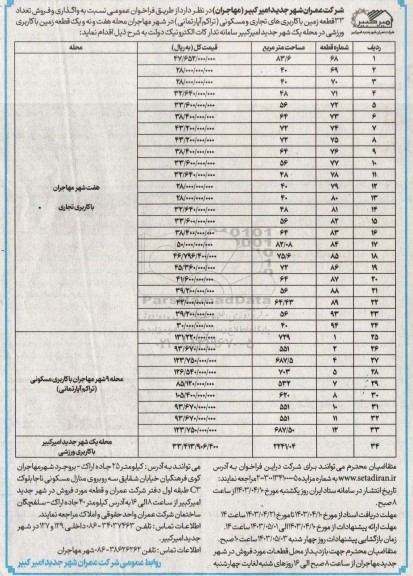 شرکت عمران شهر جدید امیر کبیر (مهاجران): در نظر دارد از طریق فراخوان عمومی نسبت به واگذاری و فروش تعداد
۳۳ قطعه زمین با کاربری های تجاری و مسکونی (تراکم آپارتمانی) در شهر مهاجران محله هفت و نه و یک قطعه زمین با کاربری
ورزشی در محله یک شهر جدید امیر کبیر سامانه تدارکات الکترونیک دولت به شرح ذیل اقدام نماید:
ردیف شماره قطعه مساحت متر مربع قیمت کل (به ریال) محله
۱ ۶۸ ۸۳/۶ ۴۷/۶۵۲/۰۰۰/۰۰۰
۲ ۶۹ ۴۰ ۲۸/۰۰۰/۰۰۰/۰۰۰
۳ ۷۰ ۴۰ ۲۸/۰۰۰/۰۰۰/۰۰۰
۴ ۷۱ ۴۸ ۳۲/۶۴۰/۰۰۰/۰۰۰
۵ ۷۲ ۵۶ ۳۳/۶۰۰/۰۰۰/۰۰۰
۶ ۷۳ ۶۴ ۳۸/۴۰۰/۰۰۰/۰۰۰
۷ ۷۴ ۷۲ ۴۳/۲۰۰/۰۰۰/۰۰۰
۸ ۷۵ ۷۲ ۴۳/۲۰۰/۰۰۰/۰۰۰
۹ ۷۶ ۶۴ ۳۸/۴۰۰/۰۰۰/۰۰۰
۱۰ ۷۷ ۵۶ ۳۳/۶۰۰/۰۰۰/۰۰۰
۱۱ ۷۸ ۴۸ ۳۲/۶۴۰/۰۰۰/۰۰۰
۱۲ ۷۹ ۴۰ ۲۸/۰۰۰/۰۰۰/۰۰۰
هفت شهر مهاجران
۱۳ ۸۰ ۴۰ ۲۸/۰۰۰/۰۰۰/۰۰۰
با کاربری تجاری
۱۴ ۸۱ ۴۸ ۳۲/۶۴۰/۰۰۰/۰۰۰
۱۵ ۸۲ ۵۶ ۳۳/۶۰۰/۰۰۰/۰۰۰
۱۶ ۸۳ ۶۴ ۳۸/۴۰۰/۰۰۰/۰۰۰
۱۷ ۸۴ ۸۲/۰۸ ۵۰/۰۰۰/۰۰۰/۰۰۰
۱۸ ۸۵ ۷۵/۶ ۴۶/۷۹۶/۴۰۰/۰۰۰
۱۹ ۸۶ ۷۲ ۴۵/۳۶۰/۰۰۰/۰۰۰
۲۰ ۸۷ ۶۴ ۴۱/۶۰۰/۰۰۰/۰۰۰
۲۱ ۸۸ ۵۶ ۳۹/۲۰۰/۰۰۰/۰۰۰
۲۲ ۸۹ ۶۴/۴۳
۲۳ ۹۳ ۵۶ ۳۹/۲۰۰/۰۰۰/۰۰۰
۲۴ ۹۴ ۴۰ ۳۰/۰۰۰/۰۰۰/۰۰۰
۲۵ ۱ ۷۲۹ ۱۳۱/۲۲۰/۰۰۰/۰۰۰
۲۶ ۲ ۵۵۱ ۹۳/۶۷۰/۰۰۰/۰۰۰
۲۷ ۴ ۶۸۷/۵ ۱۲۳/۷۵۰/۰۰۰/۰۰۰
۲۸ ۵ ۷۰۳ ۱۲۶/۵۴۰/۰۰۰/۰۰۰
محله ۹ شهر مهاجران با کاربری مسکونی
(تراکم آپارتمانی)
۲۹ ۷ ۵۳۲ ۸۵/۱۲۰/۰۰۰/۰۰۰
۳۰ ۸ ۶۲۰ ۱۰۵/۴۰۰/۰۰۰/۰۰۰
۳۱ ۱۰ ۵۵۱ ۹۳/۶۷۰/۰۰۰/۰۰۰
۳۲ ۱۱ ۵۵۱ ۹۳/۶۷۰/۰۰۰/۰۰۰
۳۳ ۱۲ ۶۸۷/۵۰ ۱۲۳/۷۵۰/۰۰۰/۰۰۰
۳۴ ۲۲۴۱/۰۴ ۳۳/۴۱۳/۹۰۶/۴۰۰ محله یک شهر جدید امیرکبیر
با کاربری ورزشی
متقاضیان محترم می توانند برای شرکت دراین فراخوان به آدرس
www.setadiran.ir به شماره مزایده مراجعه نمایند:
تاریخ انتشار در سامانه ستاد ایران روز یکشنبه مورخ ۱۴۰۳/۰۴/۱۰ از ساعت
۸ صبح.
مهلت دریافت اسناد از مورخ ۱۴۰۳/۰۴/۱۰ الی ۱۴۰۳/۰۴/۲۱ ساعت ۱۴
مهلت ارائه پیشنهادات از مورخ ۱۴۰۳/۰۴/۱۰ الی ۱۴۰۳/۰۵/۰۱ ساعت ۱۴
زمان بازگشایی پیشنهادات روز چهار شنبه ۱۴۰۳/۰۵/۰۳ ساعت ۸ صبح.
متقاضیان محترم جهت بازدید از محل قطعات مورد فروش در شهر
جدید مهاجران از ساعت ۸ صبح الی ۱۶ روزهای شنبه لغایت چهارشنبه
می توانند به آدرس: کیلومتر ۲۵ جاده اراک - بروجرد شهر مهاجران
کوی فرهنگیان خیابان شقایق سه روبروی منازل مسکونی ناجا بلوک
C۳ طبقه اول دفتر شرکت عمران و قطعه مورد فروش در شهر جدید
امیرکبیر از ساعت ۸ الی ۱۶ به آدرس کیلومتر ۴۰ جاده اراک - سلفچگان
ساختمان شرکت عمران واحد حقوقی و املاک مراجعه نمایند.
اطلاعات تماس: ۳۳۴۳۷۴۶۳-۰۸۶ داخلی ۱۲۹ و ۱۲۷ در شهر
جدید امیرکبیر.
اطلاعات تماس: ۳۸۶۲۶۲۶۲-۰۸۶ شهر مهاجران
روابط عمومی شرکت عمران شهر جدید امیر کبیر